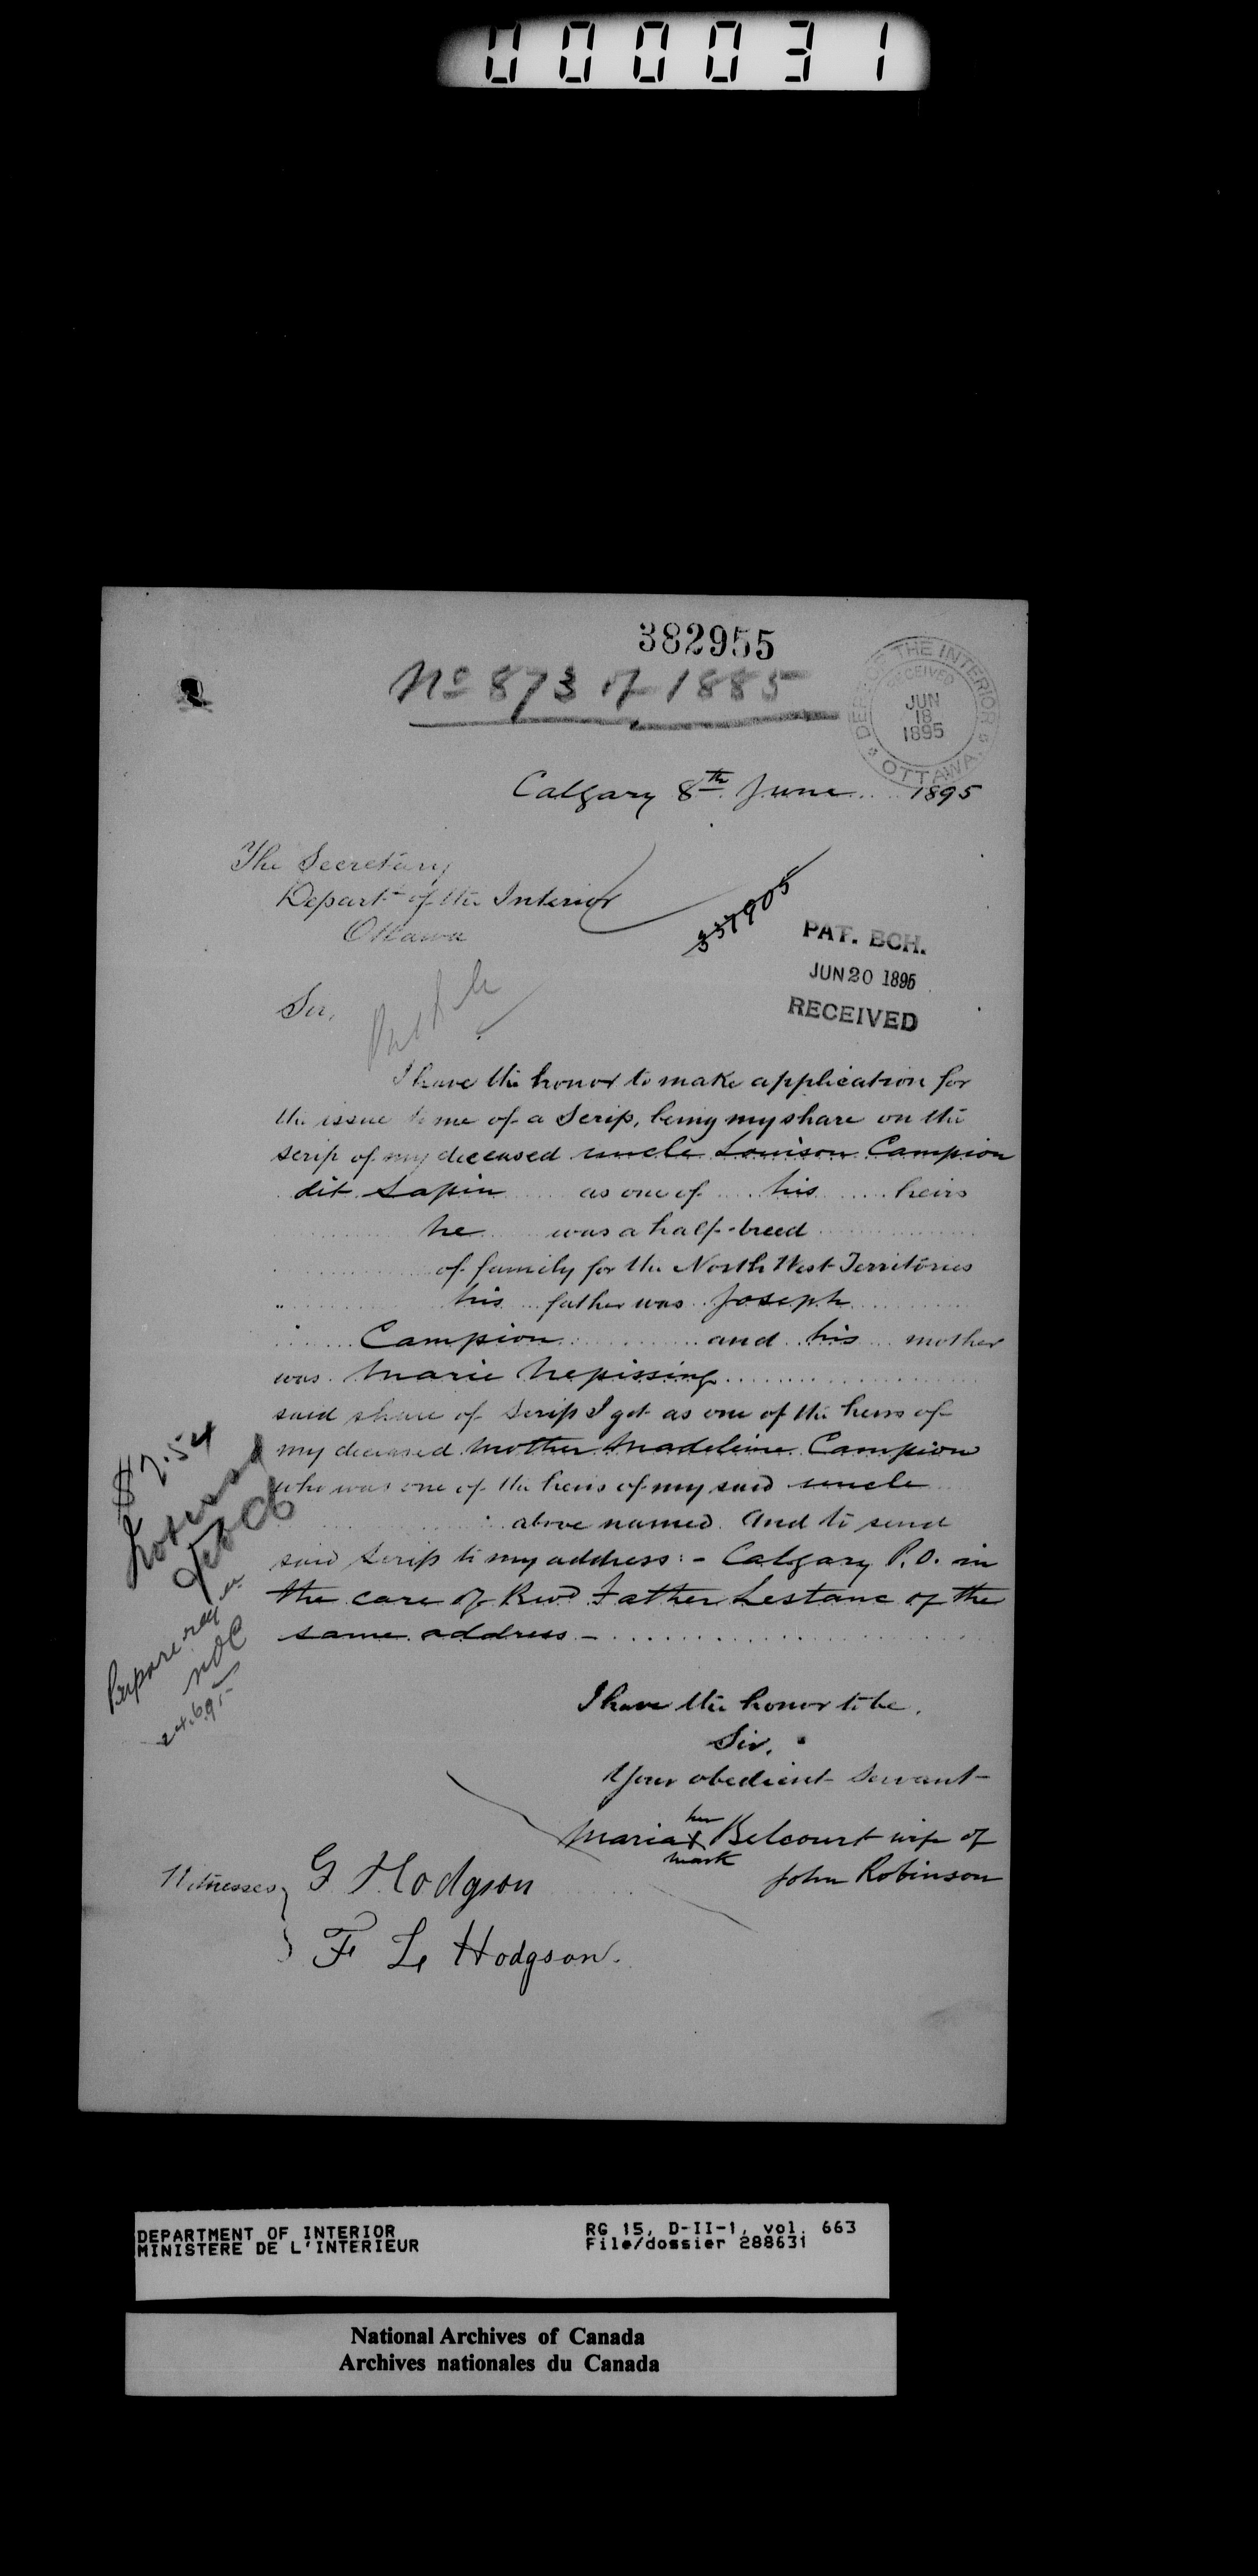 000031
382955
No 873 of 1885
DEPT. OF THE INTERIOR
RECEIVED
JUN
18
1895
OTTAWA
Calgary 8th June 1895
The Secretary
Depart- of the Interior
Ottawa
357905
PAT. BCH.
JUN 20 1895
RECEIVED
Sir,
I have the honor to make application for
the issue to me of a Scrip, being my share on the
scrip of my deceased uncle Louison Campion
dit Lapin as one of his heirs
he was a half-breed
of family for the North West Territories
his father was Joseph
Campion and his mother
was Marie Nepissing
said share of Scrip I get as one of the heirs of
my deceased Mother Madeleine Campion
who was one of the heirs of my said uncle
above named. And to send
said Scrip to my address:- Calgary P.O. in
the care of Revd Father Lestanc of the
same address -
$7.54
Prepare
24.6.95
I have the honor to be,
Sir,
Your obedient Servant
her
Maria X Belcourt wife of
mark
John Robinson
Witnesses
G Hodgson
F L Hodgson.
DEPARTMENT OF INTERIOR
MINISTERE DE L'INTERIEUR
RG 15, D-II-1, vol. 663
File/dossier 288631
National Archives of Canada
Archives nationales du Canada